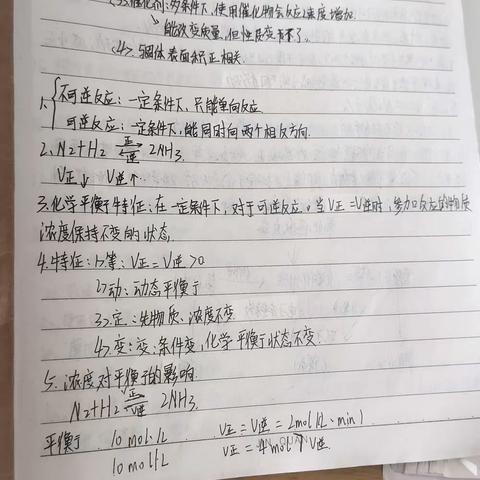 (3)催化剂:多条件下,使用催化剂会反应速度增加.
能改变质量,但性质变不了.
(4)与固体表面积正相关.
1. 不可逆反应:一定条件下,只能单向反应
可逆反应:一定条件下,能同时向两个相反方向.
2. N₂+H₂ ⇌ 2NH₃.
正
逆
V正↓ V逆↑
3.化学平衡特征:在一定条件下,对于可逆反应,当V正=V逆时,参加反应的物质
浓度保持不变的状态.
4.特征:1>等:V正=V逆>0
2>动:动态平衡
3>定:先物质、浓度不变
4>变:变:条件变,化学平衡状态不变.
5.浓度对平衡的影响
N₂+H₂ ⇌ 2NH₃.
正
逆
平衡 10mol·/L V正=V逆=2mol/(L·min)
10mol/L V正=4mol V逆